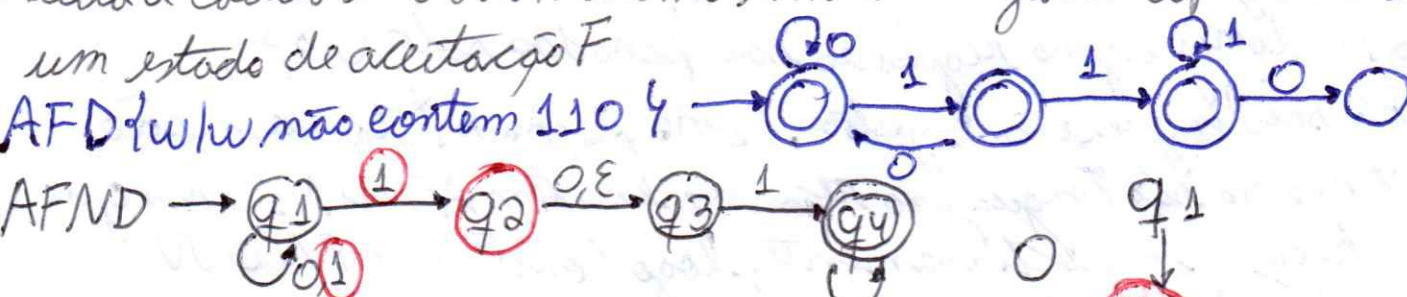 um estado de aceitação F
AFD {w/w não contem 110} 0 1 1 1 0 0
AFND q1 1 q2 0,ε q3 1 q4 q1
0,1 0